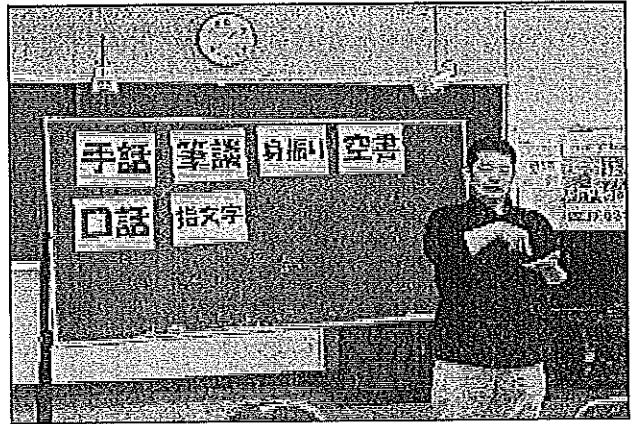 手話 筆談 身振り 空書
口話 指文字